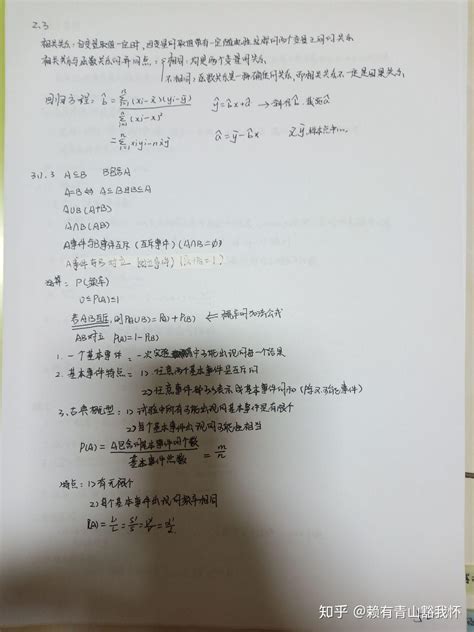 2.3
相关关系: 自变量取值一定时,因变量的取值带有一定随机性这样的两个变量之间的关系
相关关系与函数关系的异同点: 相同: 均是两个变量的关系
不相同: 函数关系是一种确定的关系,而相关关系不一定是因果关系
回归方程: b̂ = Σ(xi-x̄)(yi-ȳ) / Σ(xi-x̄)² ŷ=b̂x+â → 斜率b̂, 截距â
= Σxiyi-nx̄ȳ â=ȳ-b̂x̄
3.1.3 A⊆B B包含A
A=B⇔A⊆B且B⊆A
A∪B (A+B)
A∩B (AB)
A事件与B事件互斥 (互斥事件) (A∩B=∅)
A事件与B对立
概率: P(A)
0≤P(A)≤1
若AB互斥, 则P(A∪B)=P(A)+P(B) ⇐ 概率的加法公式
AB对立 P(A)=1-P(B)
1. 一个基本事件: 一次实验中可能出现的每一个结果
2. 基本事件特点: 1) 任意两个基本事件是互斥的
2) 任意事件都可以表示成基本事件的和 (除不可能事件)
3. 古典概型: 1) 试验中所有可能出现的基本事件只有有限个
2) 每个基本事件出现的可能性相当
P(A)= A包含的基本事件的个数 / 基本事件总数 = m/n
特点: 1) 有无限个
2) 每个基本事件出现的概率相同
P(A)=
知乎 @赖有青山豁我怀